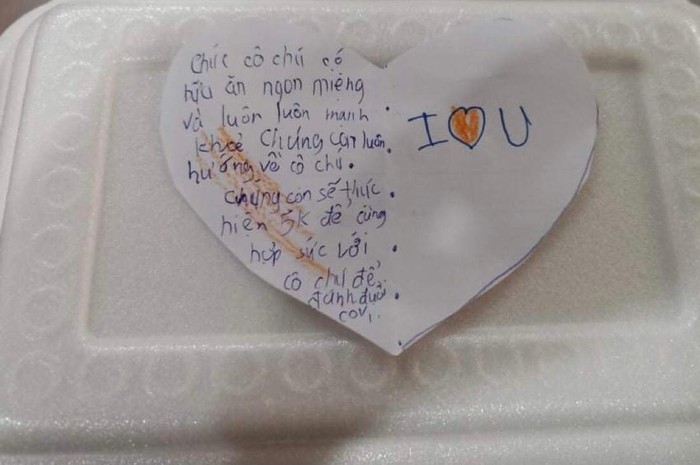 Chúc cô chú có
hữu ăn ngon miệng
và luôn luôn mạnh
khoẻ Chúng con luôn
hướng về cô chú.
chúng con sẽ thực
hiện 5K để cùng
hợp sức với
cô chú để
đánh đuổi
covi
I ♡ U